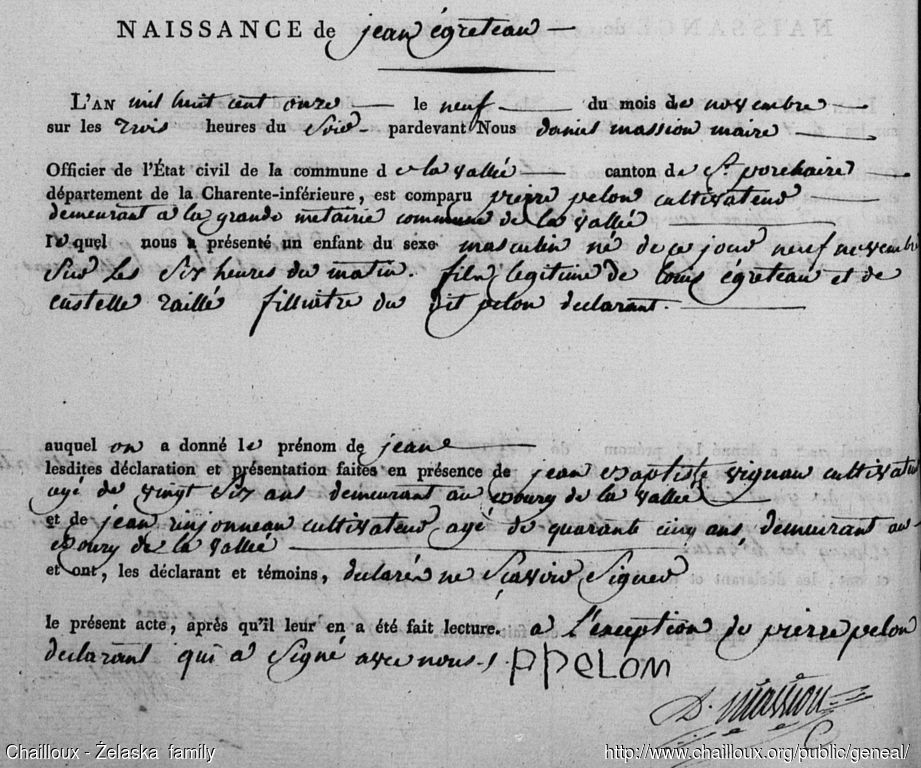 NAISSANCE de jean égreteau
L'AN mil huit cent onze le neuf du mois de novembre
sur les trois heures du soir pardevant Nous daniel massion maire
Officier de l'État civil de la commune de la vallée canton de St. porchaire
département de la Charente-inférieure, est comparu pierre pelon cultivateur
demeurant a la grande metairie commune de la vallée
lequel nous a présenté un enfant du sexe masculin né de ce jour neuf novembre
sur les six heures du matin. fils legitime de louis égreteau et de
raillé du dit pelon declarant.
auquel on a donné le prénom de jean
lesdites déclaration et présentation faites en présence de jean Baptiste vignau cultivateur
agé de vingt six ans demeurant au bourg de la vallée
et de jean cultivateur agé de quarante cinq ans, demeurant au
bourg de la vallée
et ont, les déclarant et témoins, declaré ne sçavoir signer
le présent acte, après qu'il leur en a été fait lecture. a l'exception de pierre pelon
declarant qui a signé avec nous. PPELOM
D. Massiou
Chailloux - Żelaska family http://www.chailloux.org/public/geneal/